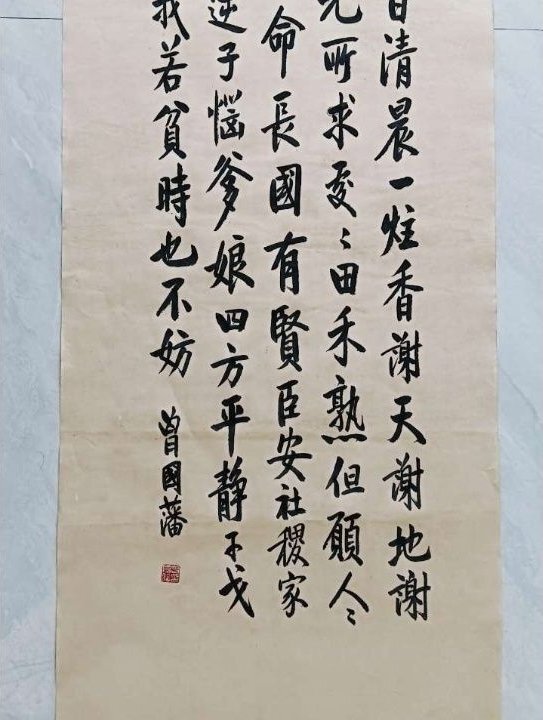 日清晨一炷香謝天謝地謝
光所求處〻田禾熟但願人〻
命長國有賢臣安社稷家
逆子惱爹娘四方平靜干戈
我若貧時也不妨
曾國藩